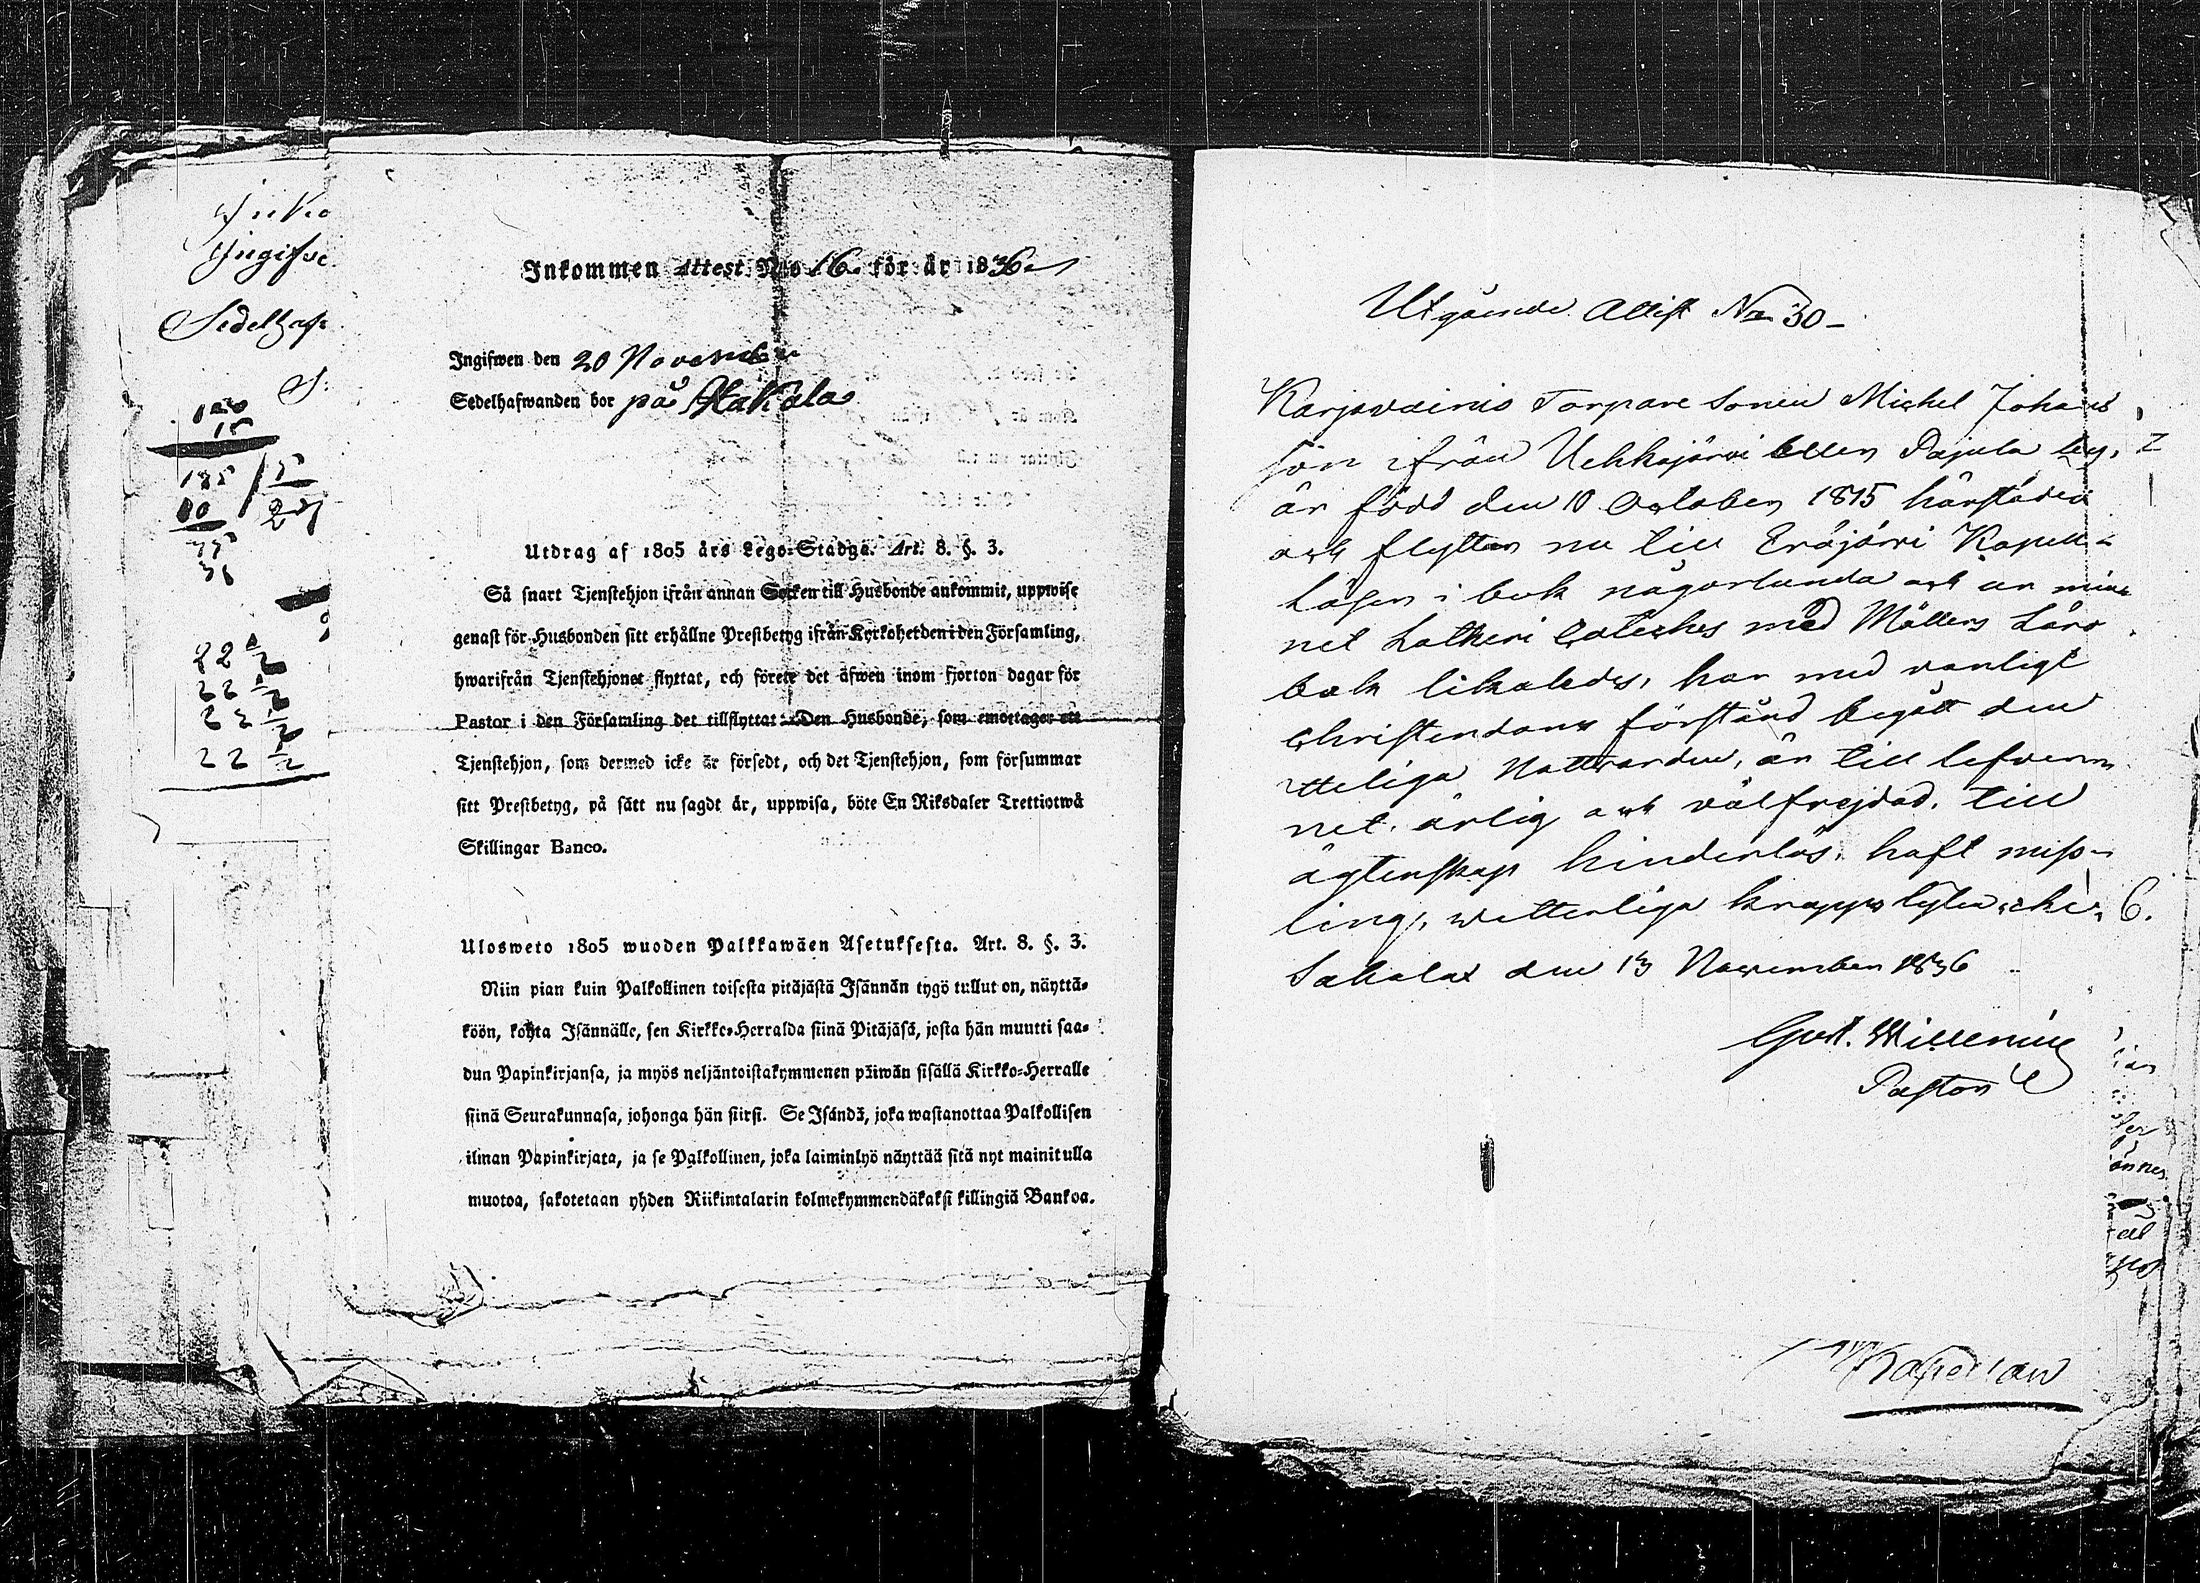 Inko
Ingifve
Sedelhaf
22 1/2
22 1/2
22 1/2
22 1/2
Inkommen Attest No 16 för år 1836
Ingifwen den 20 November
Sedelhafwanden bor på Hakala
Utdrag af 1805 års Lego-Stadga. Art. 8. §. 3.
Så snart Tjenstehjon ifrån annan Socken till Husbonde ankommit, uppwise
genast för Husbonden sitt erhållne Prestbetyg ifrån Kyrkoherden i den Församling,
hwarifrån Tjenstehjonet flyttat, och förete det äfwen inom fjorton dagar för
Pastor i den Församling det tillflyttat. Den Husbonde, som emottager ett
Tjenstehjon, som dermed icke är försedt, och det Tjenstehjon, som försummar
sitt Prestbetyg, på sätt nu sagdt är, uppwisa, böte En Riksdaler Trettiotwå
Skillingar Banco.
Ulosweto 1805 wuoden Palkkawäen Asetuksesta. Art. 8. §. 3.
Niin pian kuin Palkollinen toisesta pitäjästä Isännän tygö tullut on, näyttä-
köön, kohta Isännälle, sen Kirkko-Herralda siinä Pitäjäsä, josta hän muutti saa-
dun Papinkirjansa, ja myös neljäntoistakymmenen päiwän sisällä Kirkko-Herralle
siinä Seurakunnasa, johonga hän siirsi. Se Isändä, joka wastanottaa Palkollisen
ilman Papinkirjata, ja se Palkollinen, joka laiminlyö näyttää sitä nyt mainitulla
muotoa, sakotetaan yhden Riikintalarin kolmekymmendäkaksi killingiä Bankoa.
Utgående Attest No 30
Karjavainio Torpare Sonen Michel Johans
son ifrån Uehkajärvi eller Pajula by,
är född den 10 October 1815 härstädes
och flyttar nu till Eräjärvi Kapell
Läser i bok någorlunda och ur min
net Lutheri Cateches med Möllers Läro
bok likaledes, har med vanligt
Christendoms förstånd begått den
H. Nattvarden, är till lefver
net ärlig och välfrejdad, till
ägtenskap hinderlös, haft mess
ling, vetterligen kroppslyten icke.
Sahalax den 13 November 1836
Gust. Willenius
Pastor